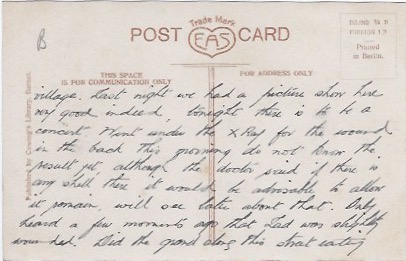 B
Trade Mark
POST CARD
EAS
INLAND ½ D
FOREIGN 1 D
Printed
in Berlin.
THIS SPACE
IS FOR COMMUNICATION ONLY
FOR ADDRESS ONLY
village. Last night we had a picture show here
very good indeed, tonight there is to be a
concert. Went under the X Ray for the wound
in the back this morning do not know the
result yet although the doctor said if there is
any shell there it would be advisable to allow
it remain, will see later about that. Only
heard a few moments ago that Tad was slightly
wounded. Did the grand along this street